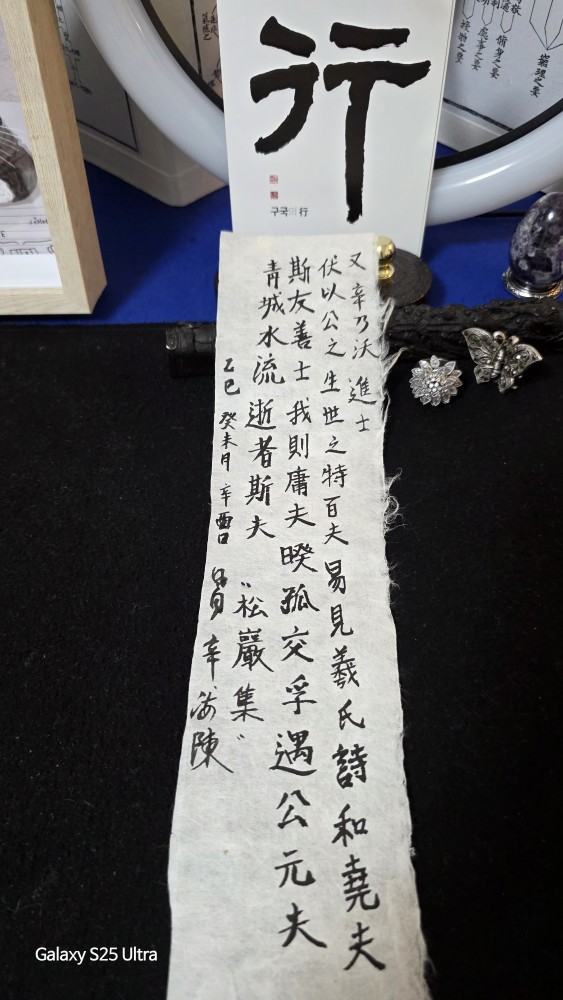 行
구국의 行
修身之要
處事之要
接物之要
又 辛乃沃 進士
伏以公之生世之特百夫 易見羲氏 詩和堯夫
斯友善士 我則庸夫 暌孤交孚 遇公元夫
靑城水流 逝者斯夫 "松巖集"
乙巳 癸未月 辛酉 辛 陳
Galaxy S25 Ultra